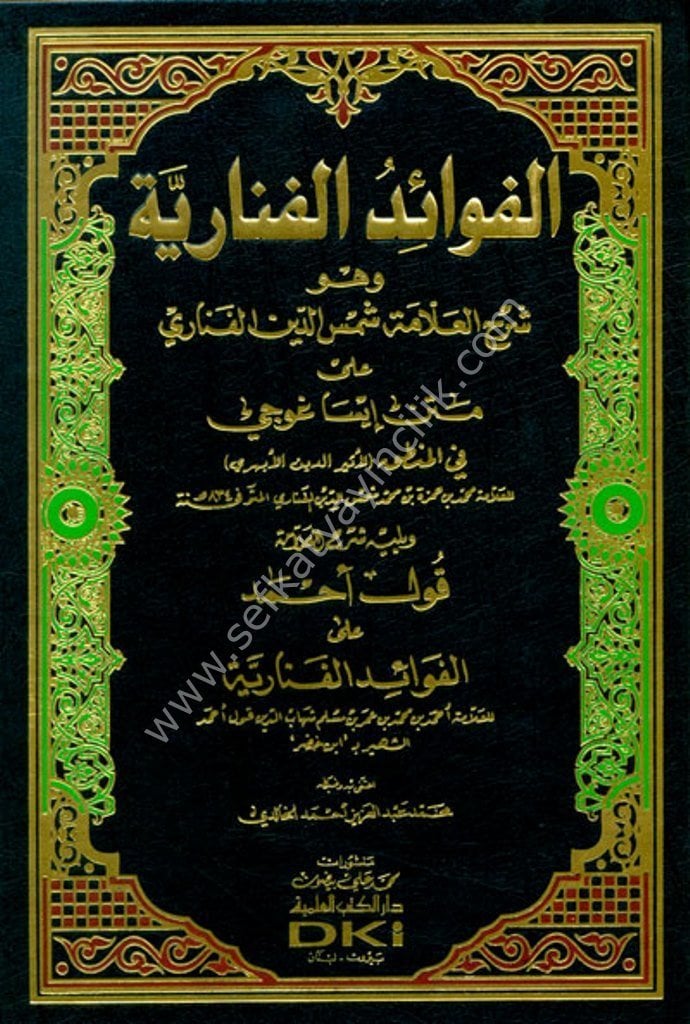 الفوائدُ الفناريَّة
وهو
شرح العلامة شمس الدين الفناري
على
متن إيساغوجي
في المنطق (لأثير الدين الأبهري)
للعلامة محمد بن حمزة بن محمد شمس الدين الفناري المتوفى ٨٣٤هـ سنة
ويليه شرح العلامة
قُول أحمد
على
الفوائد الفناريَّة
للعلامة أحمد بن محمد بن خضر بن مسلم شهاب الدين قول أحمد
الشهير بـ "ابن خضر"
اعتنى به وضبطه
محمد عبد العزيز أحمد الخالدي
منشورات
محمد علي بيضون
دار الكتب العلمية
DKi
بيروت - لبنان
www.sefkatyayincilik.com